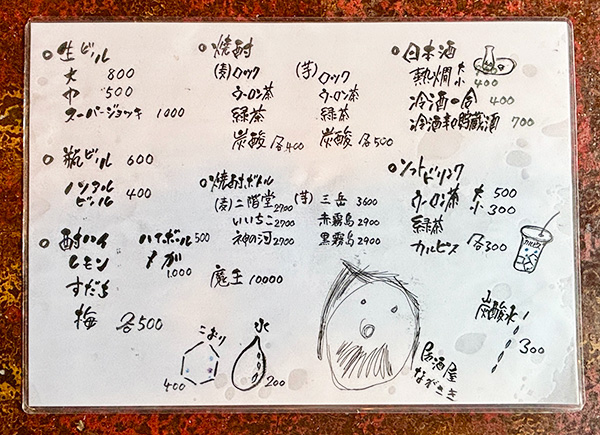 ○生ビル
大 800
中 500
スーパージョッキ 1000
○瓶ビル 600
ノンアルビール 400
○酎ハイ
レモン
すだち
梅 各500
ハイボール 500
メガ 1,000
○焼酎
(麦)ロック
ウーロン茶
緑茶
炭酸 各400
(芋)ロック
ウーロン茶
緑茶
炭酸 各500
○焼酎ボトル
(麦)二階堂 2700
いいちこ 2700
神の河 2700
(芋)三岳 3600
赤霧島 2900
黒霧島 2900
魔王 10000
こおり
400
水
200
○日本酒
熱燗 大
小 400
冷酒一合 400
冷酒 貯蔵酒 700
○ソフトドリンク
ウーロン茶 大 500
小 300
緑茶
カルピス 各300
カルピス
炭酸水
300
居酒屋
ながさき